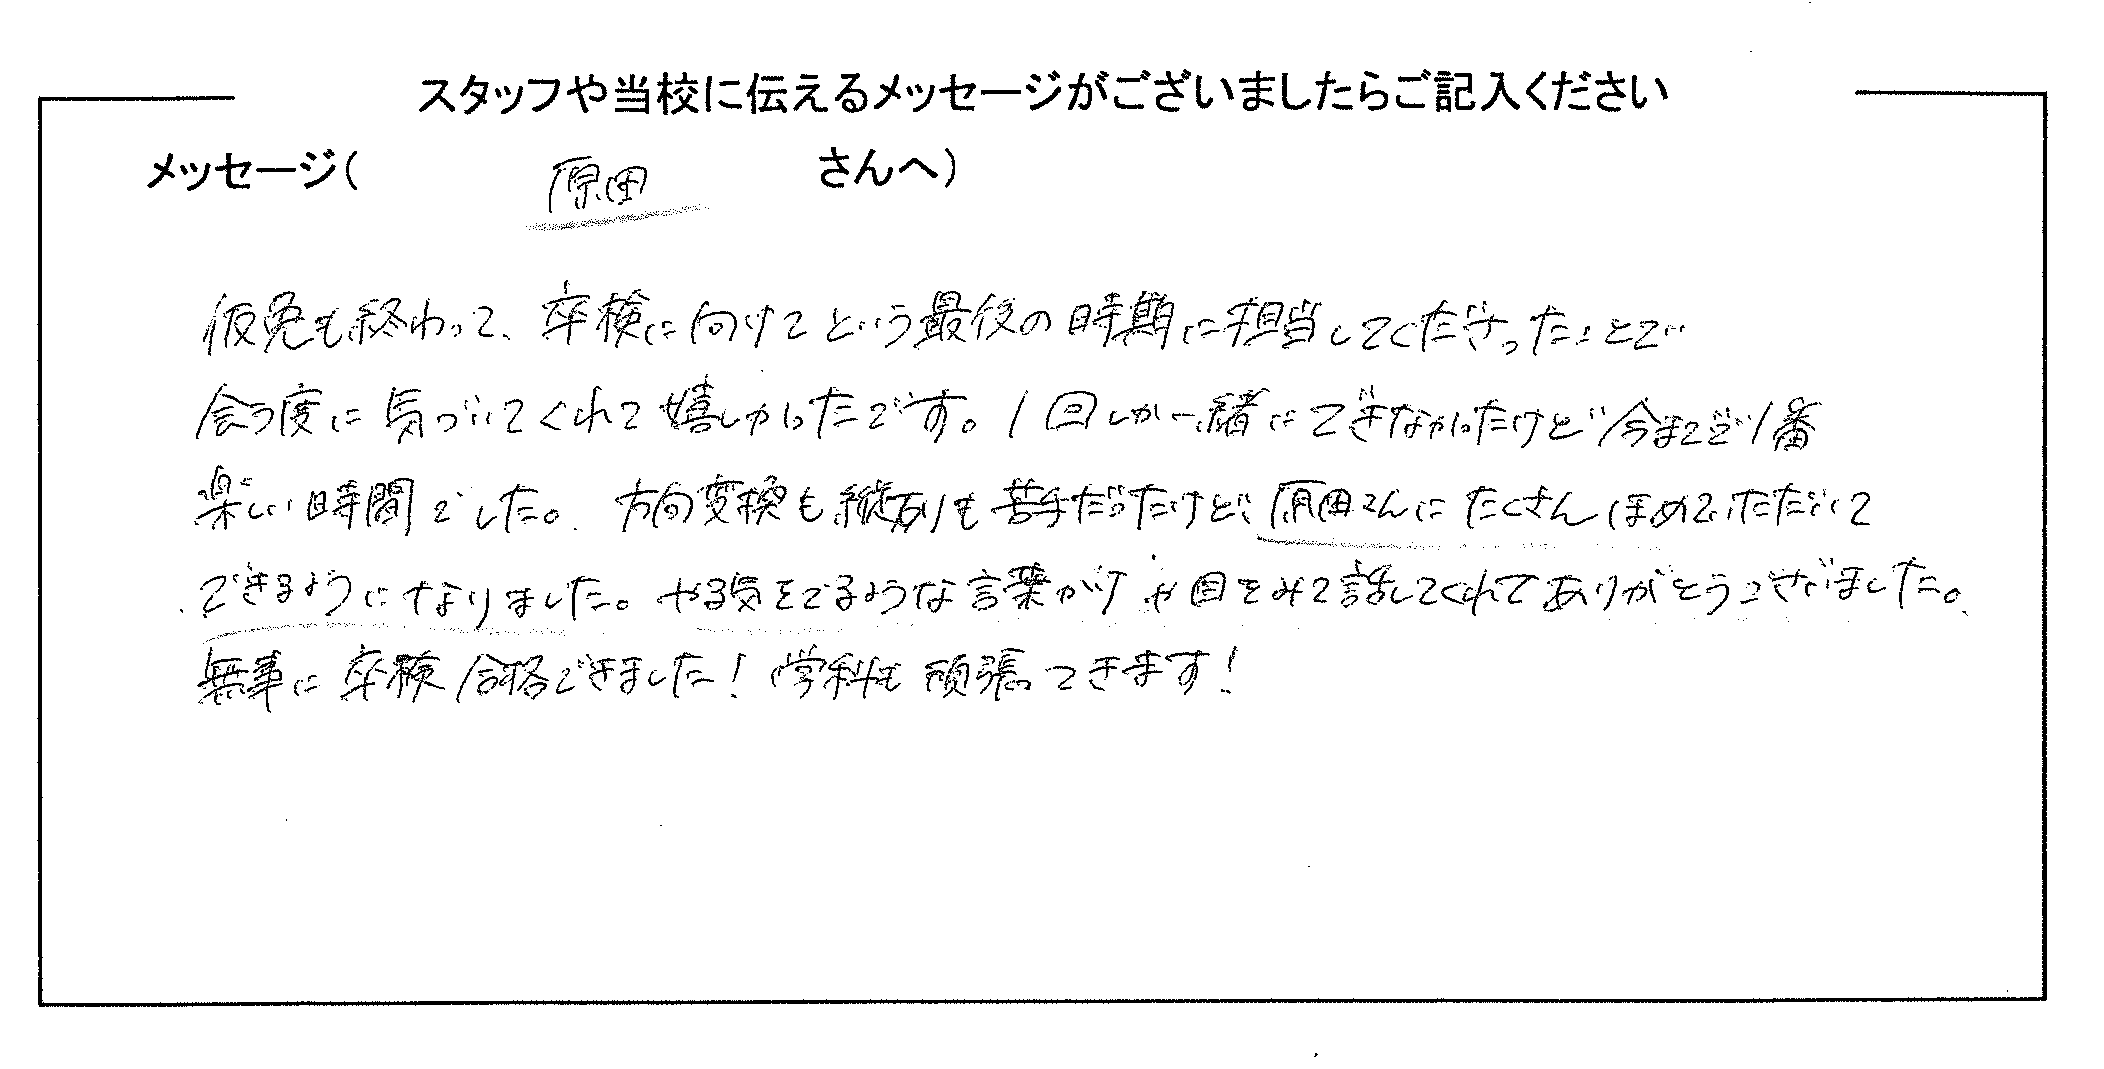 スタッフや当校に伝えるメッセージがございましたらご記入ください
メッセージ( 原田 さんへ)
仮免も終わって、卒検に向けてという最後の時期に担当してくださったことで
会う度に気づいてくれて嬉しかったです。1回しか一緒にできなかったけど今までで1番
楽しい時間でした。方向変換も縦列も苦手だったけど、原田さんにたくさんほめていただいて
できるようになりました。やる気をでるような言葉がけや目をみて話してくれてありがとうございました。
無事に卒検合格できました!学科も頑張ってきます!